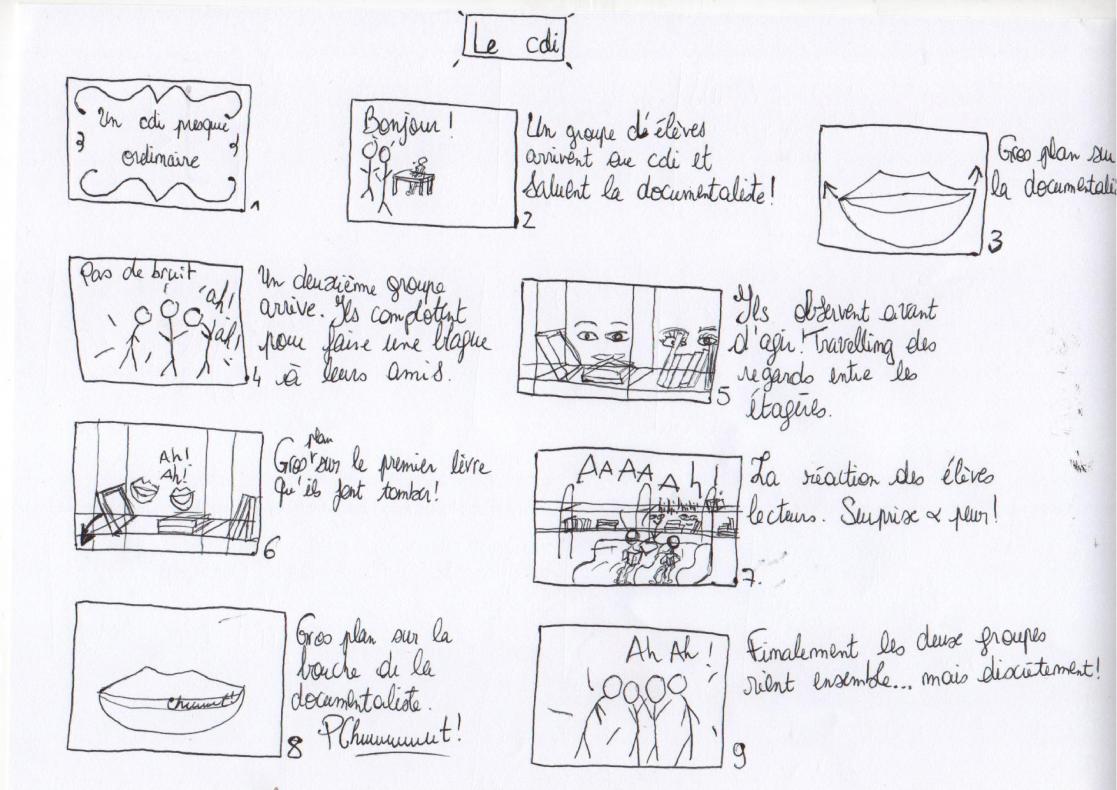 Le cdi
Un cdi presque
ordinaire
1
Bonjour !
2
Un groupe d'élèves
arrivent au cdi et
saluent la documentaliste !
3
Gros plan su
la documentali
Pas de bruit
ah!
ah!
4
Un deuxième groupe
arrive. Ils complotent
pour faire une blague
à leurs amis.
5
Ils observent avant
d'agir! Travelling des
regards entre les
étagères.
Ah!
Ah!
6
plan
Gros sur le premier livre
qu'ils font tomber!
AAAA Ah!
hihihihi
7.
La réaction des élèves
lecteurs. Surprise & peur!
chuuuut!
8
Gros plan sur la
bouche de la
documentaliste.
PChuuuuuuut!
Ah Ah !
9
Finalement les deux groupes
rient ensemble... mais discrètement!